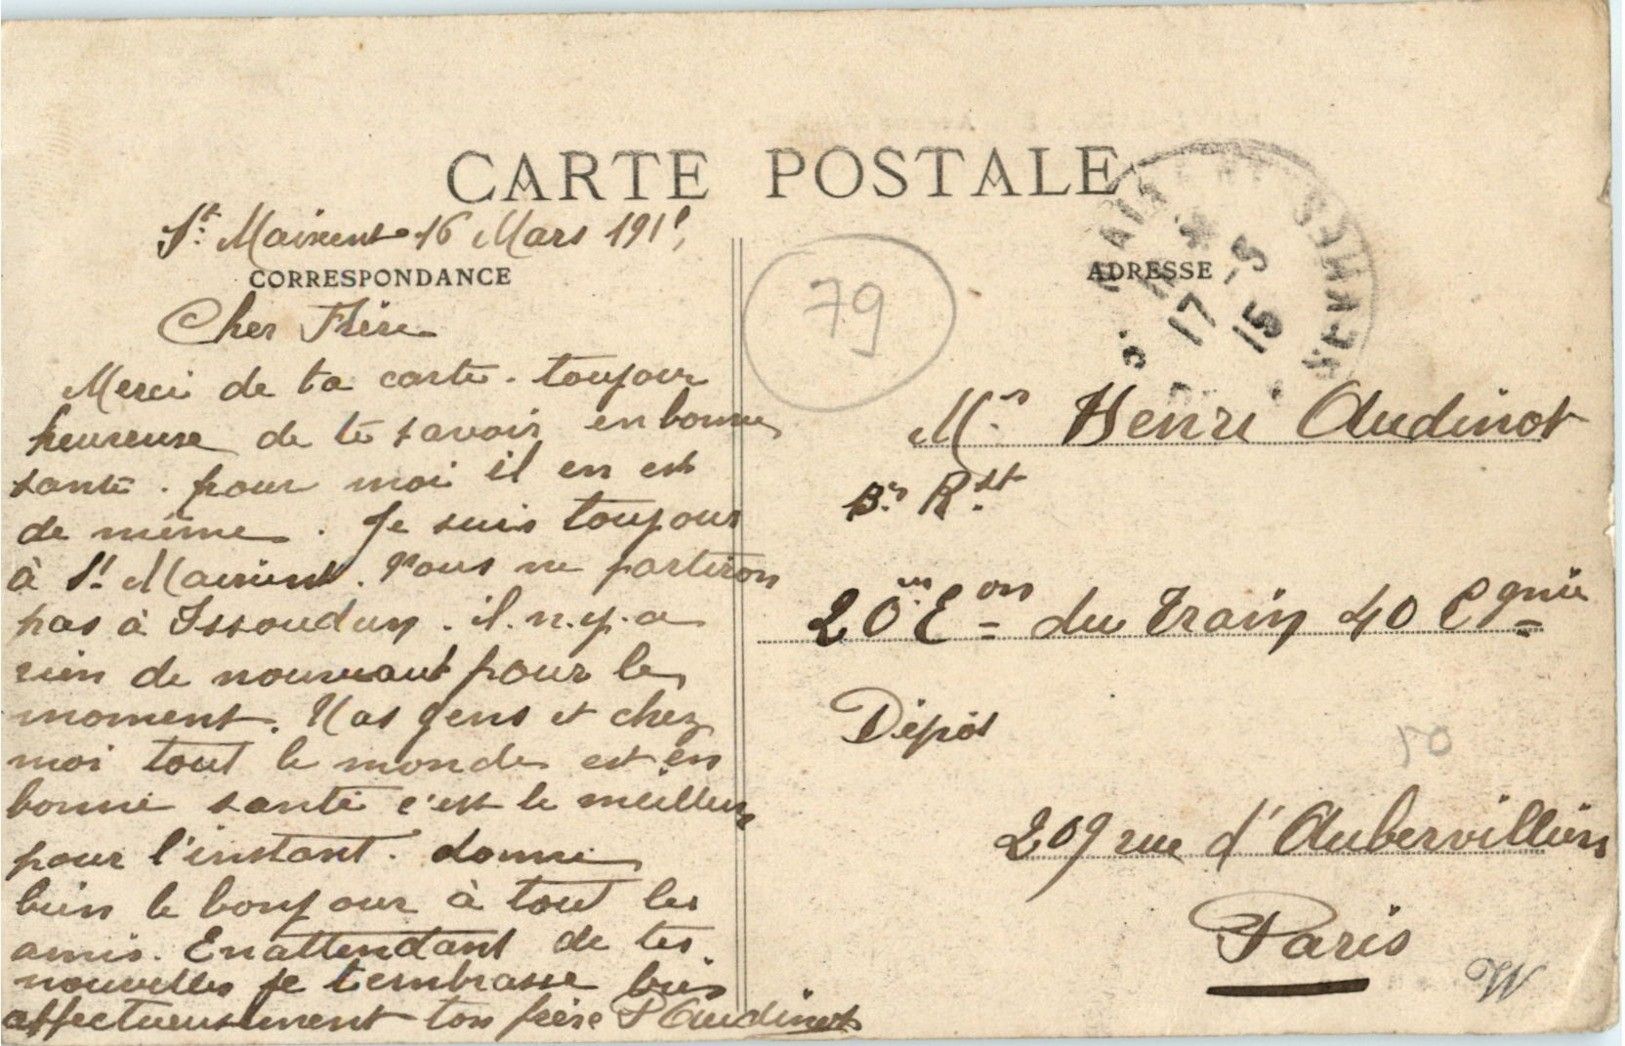 CARTE POSTALE
St. Maixent 16 Mars 191
CORRESPONDANCE
Cher Frère
Merci de ta carte. toujour
heureuse de te savoir en bonne
santé. pour moi il en est
de même. Je suis toujour
à St Maixent. Nous ne partiron
pas à Issoudun. il.n.y.a
rien de nouveaut pour le
moment. Nas gens et chez
moi tout le monde est en
bonne santé c'est le meilleur
pour l'instant. donne
bien le bonjour à tout les
amis. Enattendant de tes
nouvelles je t'embrasse bien
affectueusement ton frère P Audinot
79
ADRESSE
17 -3
15
SEVRES
Mr. Henri Audinot
Br. Rst
20em Eon du Train 40 Cgnie
Dépôt
50
209 rue d'Aubervilliers
Paris
W